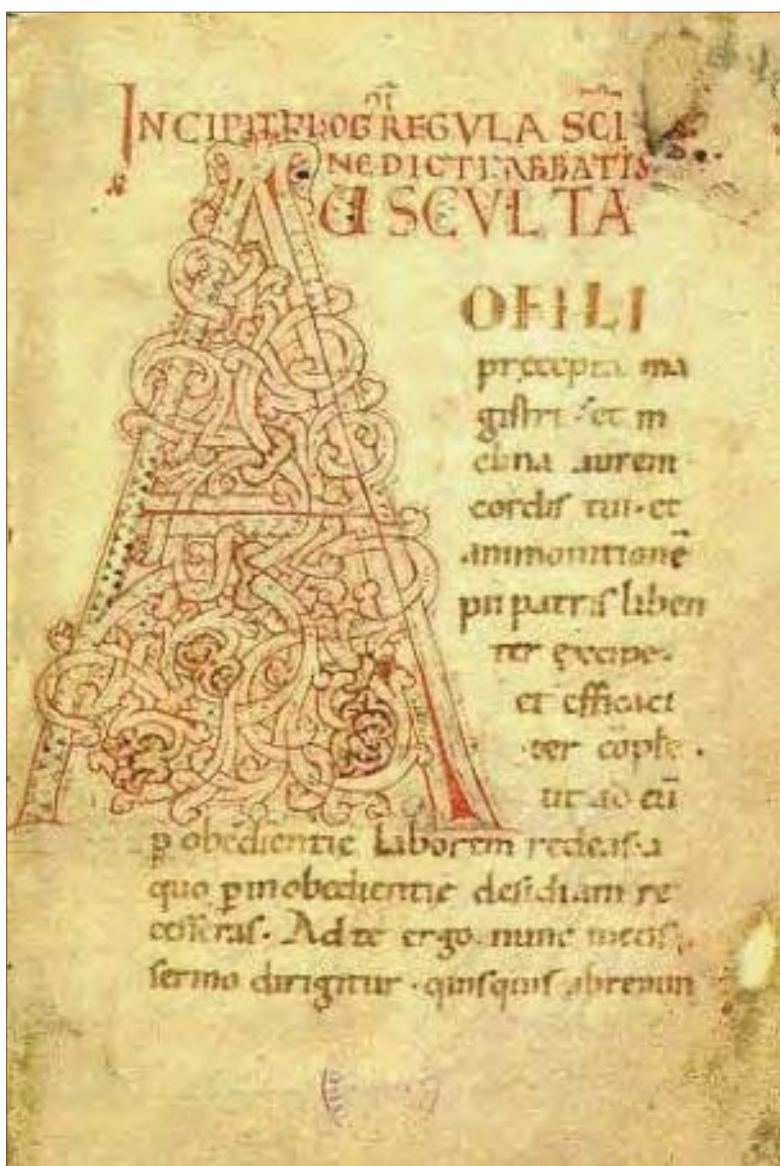 INCIPIT PROG REGVLA SCI
NEDICTI ABBATIS
AUSCVLTA
O FILI
precepta ma
gistri · et in
clina aurem
cordis tui · et
ammonitionē
pii patris liben
ter excipe ·
et efficaci
ter cōple ·
ut ad eū
p obedientie laborem redeas a
quo p inobedientie desidiam re
cesseras · Ad te ergo nunc
sermo dirigitur · quisquis abrenun